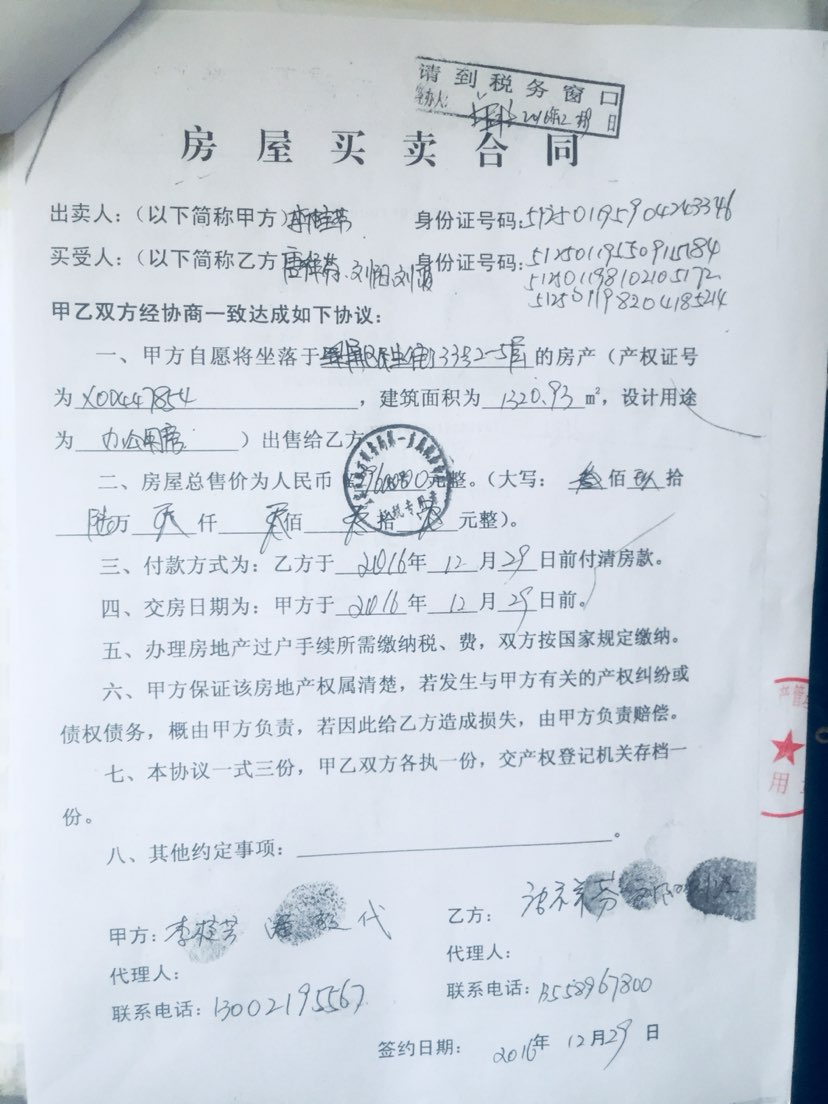 请到税务窗口
经办人: 2016年12月 日
房屋买卖合同
出卖人：（以下简称甲方）李桂芳 身份证号码：512501195904243346
买受人：（以下简称乙方） 身份证号码：512501195509115184
512501198102105172
512501198204185214
甲乙双方经协商一致达成如下协议：
一、甲方自愿将坐落于 的房产（产权证号
为 X00447854 ，建筑面积为 1320.93 m²，设计用途
为 办公用房 ）出售给乙方
二、房屋总售价为人民币 3960000元整。（大写： 叁 佰 玖 拾
陆 万 零 仟 零 佰 零 拾 零 元整）。
三、付款方式为：乙方于 2016 年 12 月 29 日前付清房款。
四、交房日期为：甲方于 2016 年 12 月 29 日前。
五、办理房地产过户手续所需缴纳税、费，双方按国家规定缴纳。
六、甲方保证该房地产权属清楚，若发生与甲方有关的产权纠纷或
债权债务，概由甲方负责，若因此给乙方造成损失，由甲方负责赔偿。
七、本协议一式三份，甲乙双方各执一份，交产权登记机关存档一
份。
八、其他约定事项： 。
甲方：李桂芳 代
乙方：
代理人：
代理人：
联系电话：13002195567
联系电话：13558967800
签约日期： 2016年 12月29 日
产管
用